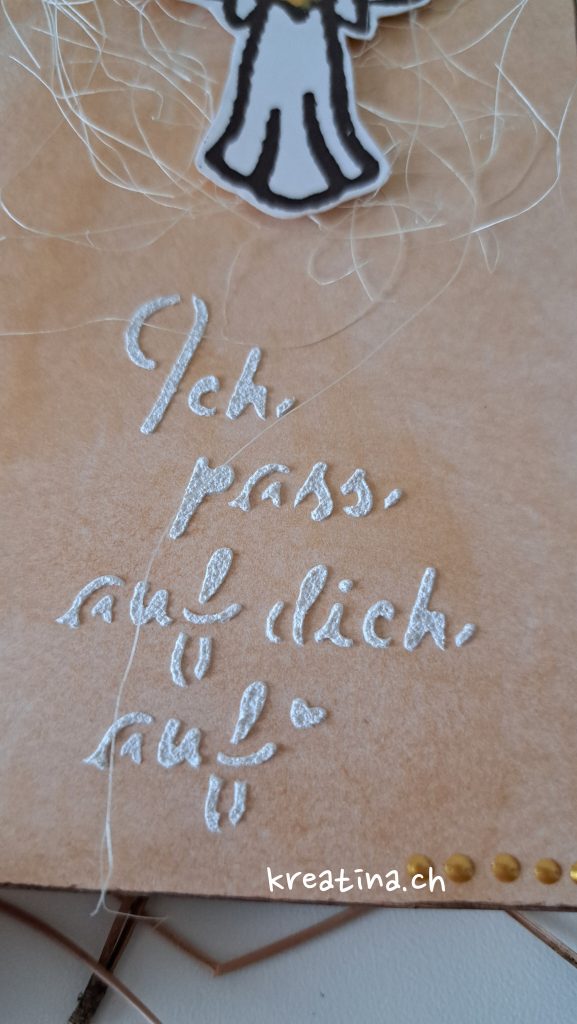 Ich
pass
auf dich
auf
kreatina.ch